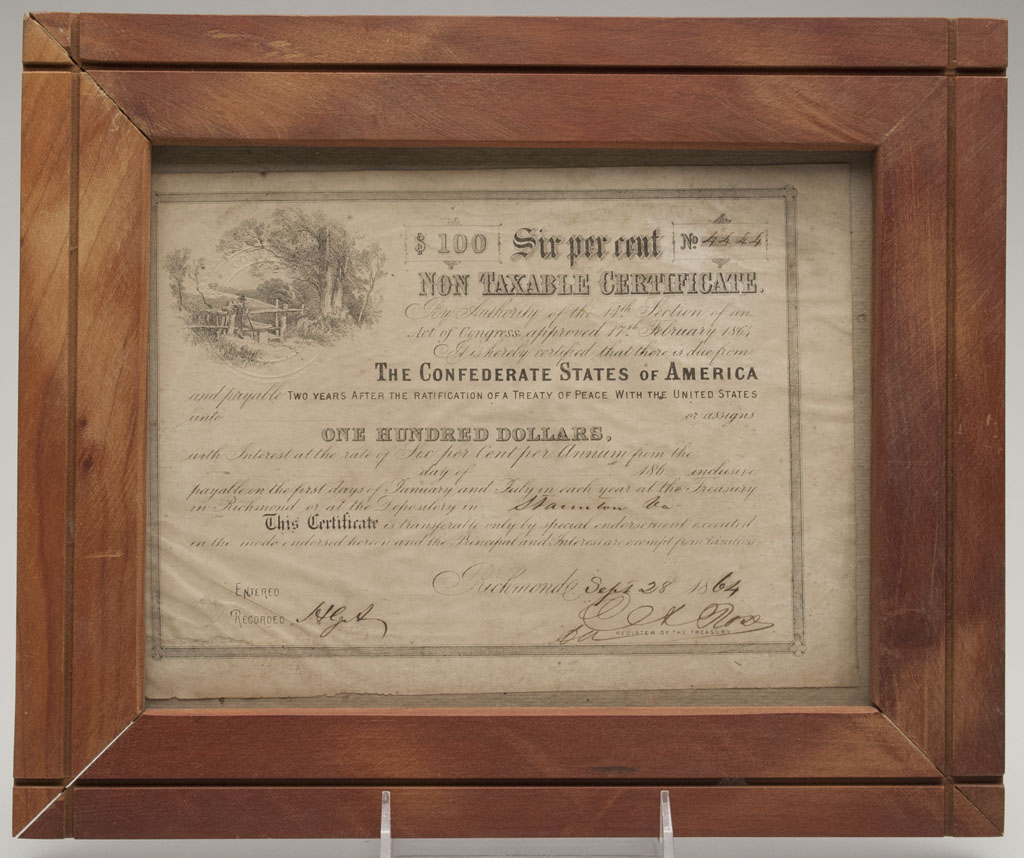 $ 100 Six per cent No 4444
NON TAXABLE CERTIFICATE.
By Authority of the 14th Section of an
Act of Congress, approved 17th February 1864
It is hereby certified that there is due from
THE CONFEDERATE STATES OF AMERICA
and payable TWO YEARS AFTER THE RATIFICATION OF A TREATY OF PEACE WITH THE UNITED STATES
unto or assigns
ONE HUNDRED DOLLARS,
with Interest at the rate of Six per Cent per Annum from the
day of 186 inclusive
payable on the first days of January and July in each year at the Treasury
in Richmond or at the Depository in Staunton Va
This Certificate is transferable only by special endorsement executed
in the mode endorsed hereon and the Principal and Interest are exempt from taxation
Richmond, Sept 28 1864
ENTERED
RECORDED
Rose
REGISTER OF THE TREASURY